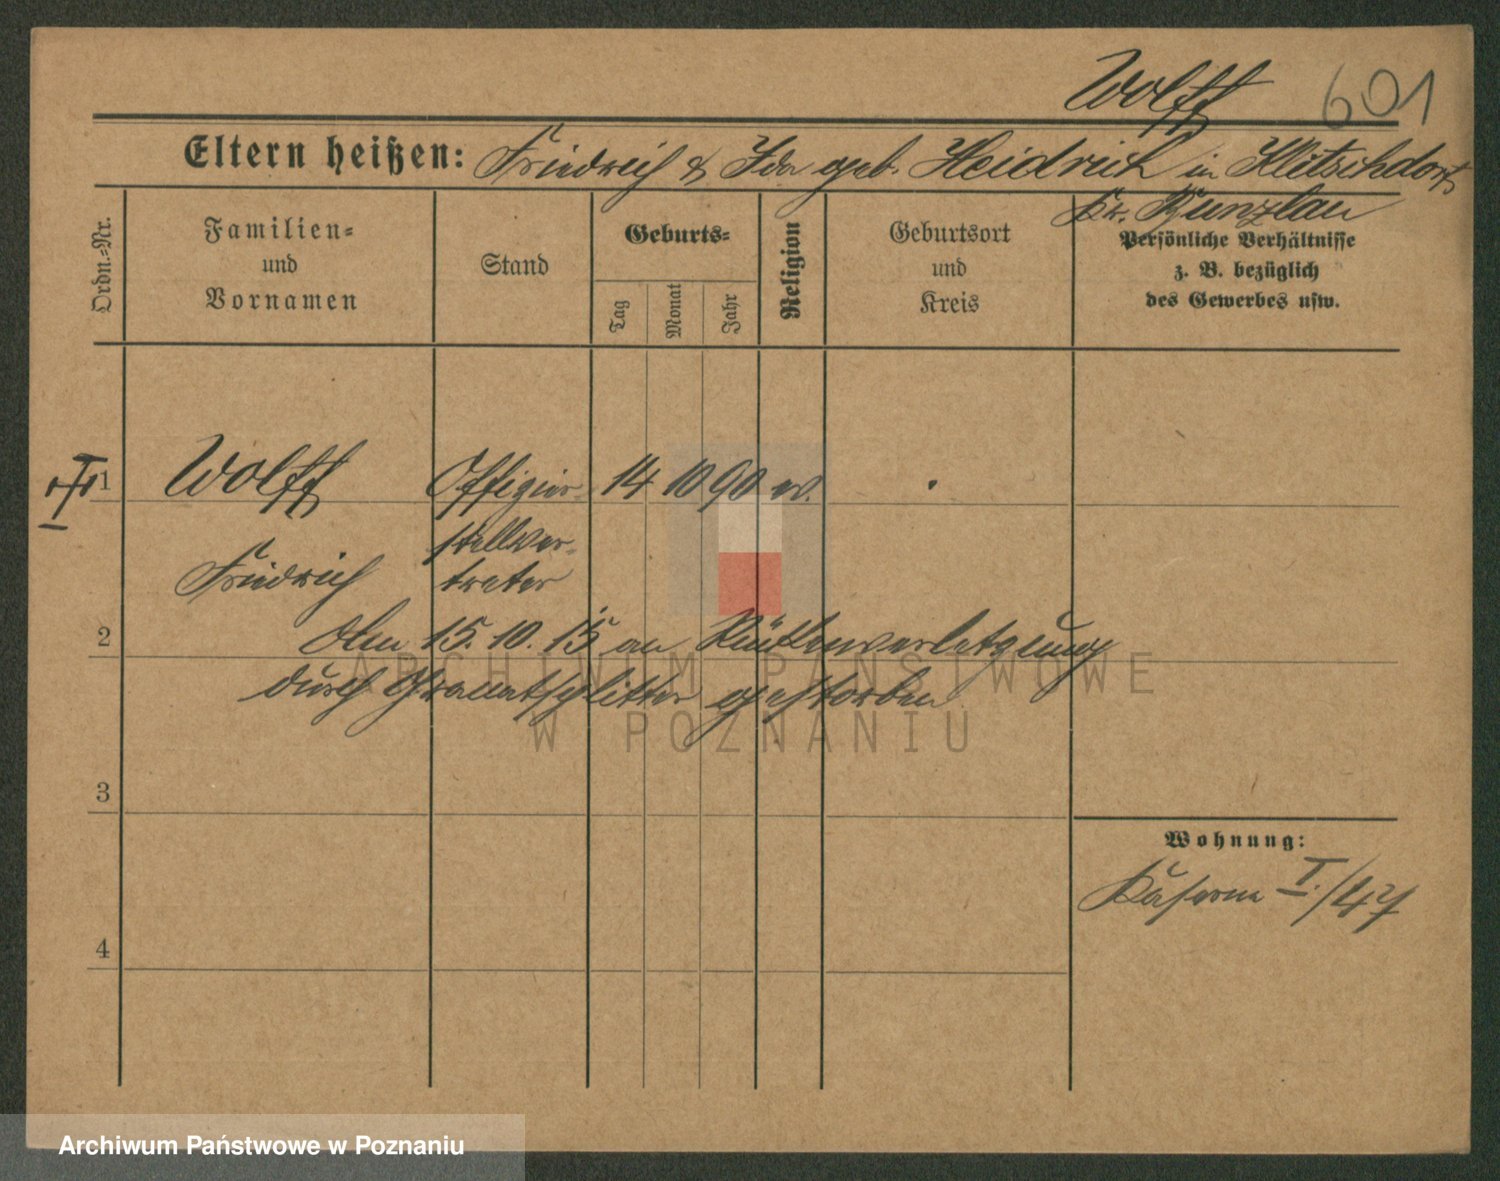 Wolff 601
Eltern heißen: Friedrich & Ida geb. Heidrich in Klitschdorf
Kr. Bunzlau
Ordn.-Nr.
Familien-
und
Vornamen
Stand
Geburts-
Tag
Monat
Jahr
Religion
Geburtsort
und
Kreis
Persönliche Verhältnisse
z. B. bezüglich
des Gewerbes usw.
1 Wolff Offizier- 14 10 90 ev.
stellver-
Friedrich treter
2 Am 15.10.15 an Rückenverletzung
durch Granatsplitter gestorben
3
Wohnung:
Kaserne I./47
4
ARCHIWUM PAŃSTWOWE
W POZNANIU
Archiwum Państwowe w Poznaniu